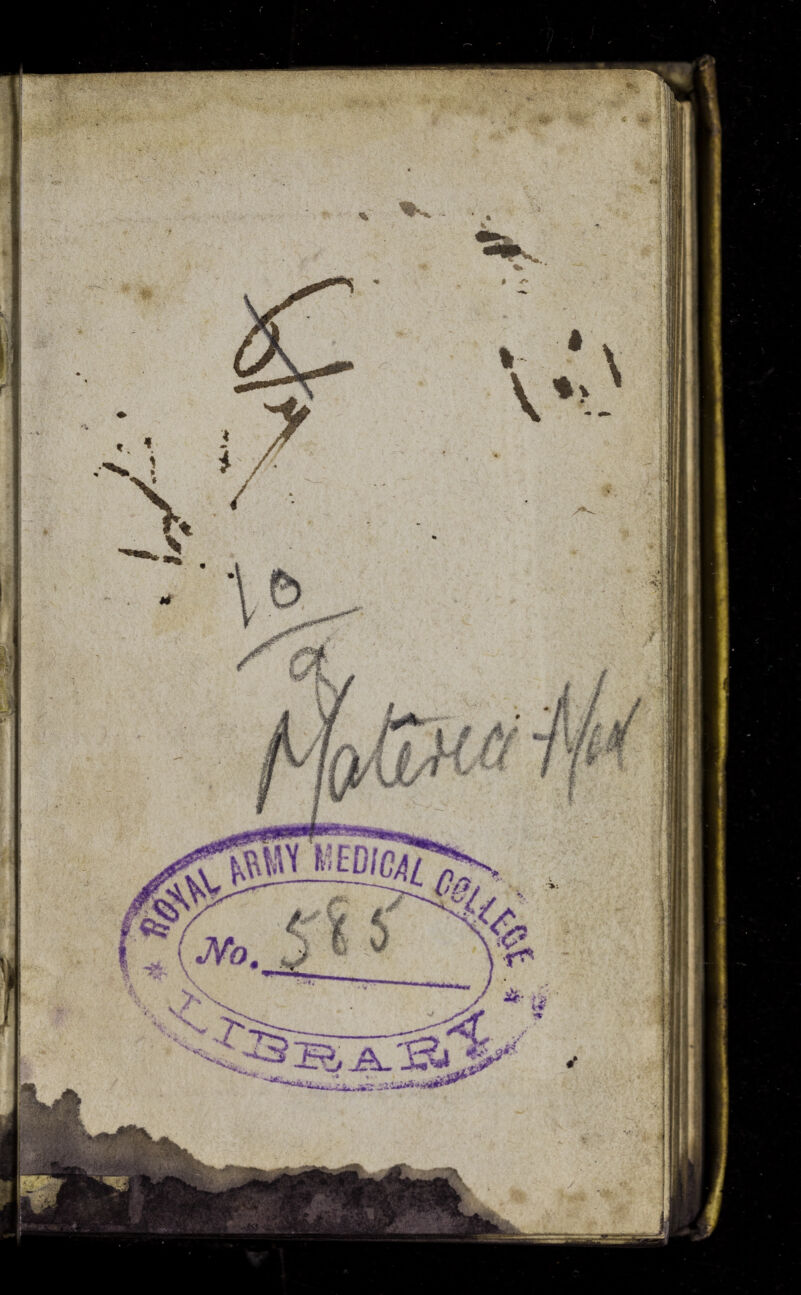 10
9
Materea Med
ROYAL ARMY MEDICAL COLLEGE
No. 585
LIBRARY